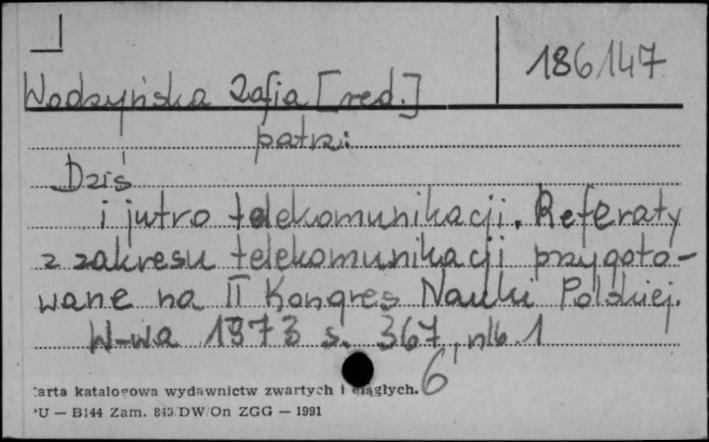 186147
Wodzyńska Zofia [red.]
patrz:
Dziś
i jutro telekomunikacji. Referaty
z zakresu telekomunikacji przygoto-
wane na II Kongres Nauki Polskiej.
W-wa 1973 s. 367, nlb. 1
6
arta katalogowa wydawnictw zwartych i ciągłych.
PU — B144 Zam. 849/DW/On ZGG — 1991